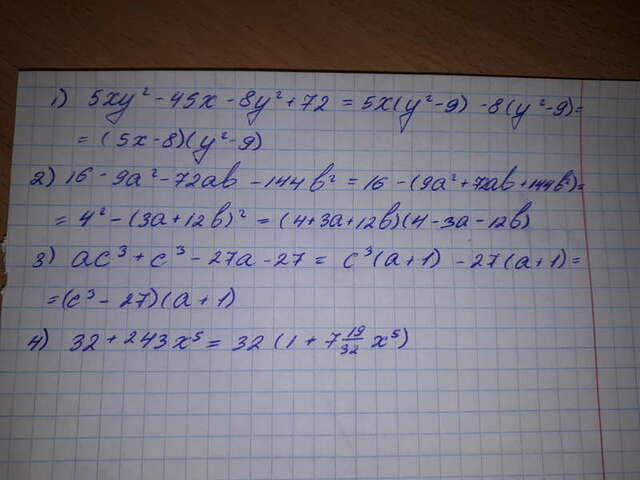 1) 5xy² - 45x - 8y² + 72 = 5x(y² - 9) - 8(y² - 9) =
= (5x - 8)(y² - 9)
2) 16 - 9a² - 72ab - 144b² = 16 - (9a² + 72ab + 144b²) =
= 4² - (3a + 12b)² = (4 + 3a + 12b)(4 - 3a - 12b)
3) ac³ + c³ - 27a - 27 = c³(a + 1) - 27(a + 1) =
= (c³ - 27)(a + 1)
4) 32 + 243x⁵ = 32 (1 + 7 19/32 x⁵)